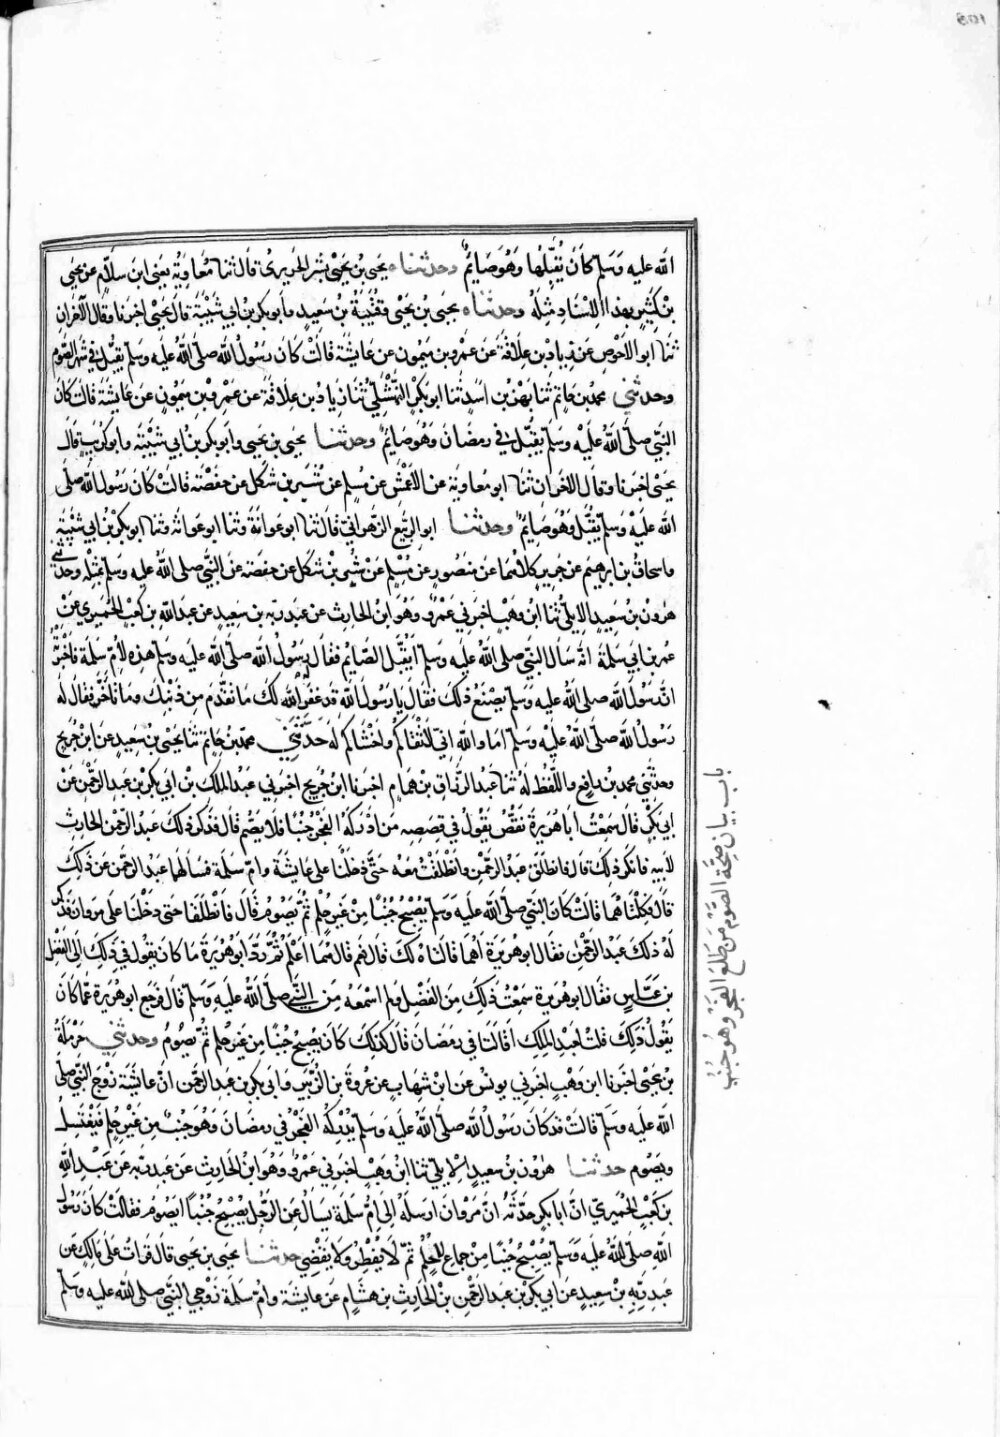 الله عليه وسلم كان يقبلها وهو صائم وحدثنا يحيى بن يحيى بشر الحريري قال ثنا معاوية يعني ابن سلام عن يحيى
بن كثير بهذا الاسناد مثله وحدثنا يحيى بن يحيى وقتيبة بن سعيد وأبو بكر بن ابي شيبة قال يحيى اخبرنا وقال الآخران
ثنا ابو الاحوص عن زياد بن علاقة عن عمرو بن ميمون عن عايشة قالت كان رسول الله صلى الله عليه وسلم يقبل في شهر الصوم
وحدثني محمد بن حاتم ثنا بهز بن اسد ثنا ابو بكر النهشلي ثنا زياد بن علاقة عن عمرو بن ميمون عن عايشة قالت كان
النبي صلى الله عليه وسلم يقبل في رمضان وهو صايم وحدثنا يحيى بن يحيى وأبو بكر بن ابي شيبة وابو كريب قال
يحيى اخبرنا وقال الاخران ثنا ابو معاوية عن الاعمش عن مسلم عن شتير بن شكل عن حفصة قالت كان رسول الله صلى
الله عليه وسلم يقبل وهو صايم وحدثنا ابو الربيع الزهراني قال ثنا ابو عوانة وثنا ابو عوانة وثنا ابو بكر بن ابي شيبة
واسحاق بن ابرهيم عن جرير كلاهما عن منصور عن مسلم عن شتير بن شكل عن حفصة عن النبي صلى الله عليه وسلم بمثله وحدثني
هرون بن سعيد الايلي ثنا ابن وهب اخبرني عمرو وهو ابن الحارث عن عبد ربه بن سعيد عن عبد الله بن كعب الحميري عن
عمر بن ابي سلمة انه سال النبي صلى الله عليه وسلم ايقبل الصايم فقال رسول الله صلى الله عليه وسلم هذه لأم سلمة فاخبرته
ان رسول الله صلى الله عليه وسلم يصنع ذلك فقال يا رسول الله قد غفر الله لك ما تقدم من ذنبك وما تاخر فقال له
رسول الله صلى الله عليه وسلم اما والله اني لاتقاكم واخشاكم له حدثني محمد بن حاتم ثنا يحيى بن سعيد عن ابن جريج
وحدثني محمد بن رافع واللفظ له ثنا عبد الرزاق بن همام اخبرنا ابن جريج اخبرني عبد الملك بن ابي بكر بن عبد الرحمن عن
ابي بكر قال سمعت أبا هريرة نقص يقول في قصصه من ادركه الفجر جنبا فلا يصم قال فذكر ذلك عبد الرحمن الحارث
لابيه فانكر ذلك قال فانطلق عبد الرحمن وانطلقت معه حتى دخلنا على عايشة وام سلمة فسالهما عبد الرحمن عن ذلك
قال فكلتاهما قالت كان النبي صلى الله عليه وسلم يصبح جنبا من غير حلم ثم يصوم قال فانطلقنا حتى دخلنا على مروان فذكر
له ذلك عبد الرحمن فقال ابو هريرة اهما قالتاه لك قال نعم قال هما اعلم ثم رد ابو هريرة ما كان يقول في ذلك الى الفضل
بن عباس فقال ابو هريرة سمعت ذلك من الفضل ولم اسمعه من النبي صلى الله عليه وسلم قال فرجع ابو هريرة عما كان
يقول ذلك قلت لعبد الملك اقالتا في رمضان قال كذلك كان يصبح جنبا من غير حلم ثم يصوم وحدثني حرملة
بن يحيى اخبرنا ابن وهب اخبرني يونس عن ابن شهاب عن عروة بن الزبير وابي بكر بن عبد الرحمن ان عايشة زوج النبي صلى
الله عليه وسلم قالت قد كان رسول الله صلى الله عليه وسلم يدركه الفجر في رمضان وهو جنب من غير حلم فيغتسل
ويصوم حدثنا هرون بن سعيد الايلي ثنا ابن وهب اخبرني عمرو وهو ابن الحارث عن عبد ربه عن عبد الله
بن كعب الحميري ان ابا بكر حدثه ان مروان ارسله الى ام سلمة يسال عن الرجل يصبح جنبا ايصوم فقالت كان رسول
الله صلى الله عليه وسلم يصبح جنبا من جماع لا حلم ثم لا يفطر ولا يقضي حدثنا يحيى بن يحيى قال قرات على مالك عن
عبد ربه بن سعيد عن ابي بكر بن عبد الرحمن بن الحارث بن هشام عن عايشة وام سلمة زوجي النبي صلى الله عليه وسلم
باب بيان صحة الصوم من طلع الفجر وهو جنب